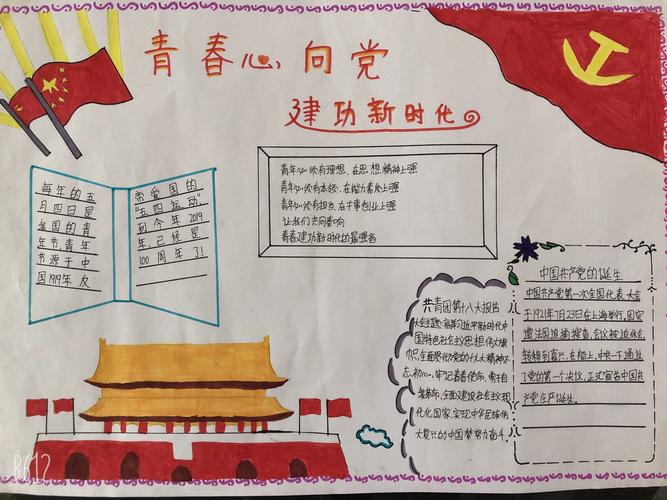 青春心向党
建功新时代
每年的五
月四日是
我国的青
年节,青年
节源于中
国1919年反
帝爱国的
"五四运动",
到今年2019
年已经是
100周年了!
青年必须有理想,在思想精神上强
青年必须有本领,在能力素质上强
青年必须有担当,在干事创业上强
让我们共同奏响
青春建功新时代的最强音
共青团第十八大报告
大会主题:
时代中
国特色社会主义思想伟大旗
帜,全面贯彻党的十九大精神不
忘初心,牢记青春使命,
革命,全面建设社会主义现
代化国家,实现中华民族伟
大复兴的中国梦努力奋斗.
中国共产党的诞生
中国共产党第一次全国代表大会
于1921年7月23日在上海举行,因突
遭法国巡捕搜查,会议被迫休会,
转移到嘉兴,在船上,中共一大通过
了党的第一个决议,正式宣告中国共
产党庄严诞生.
R612